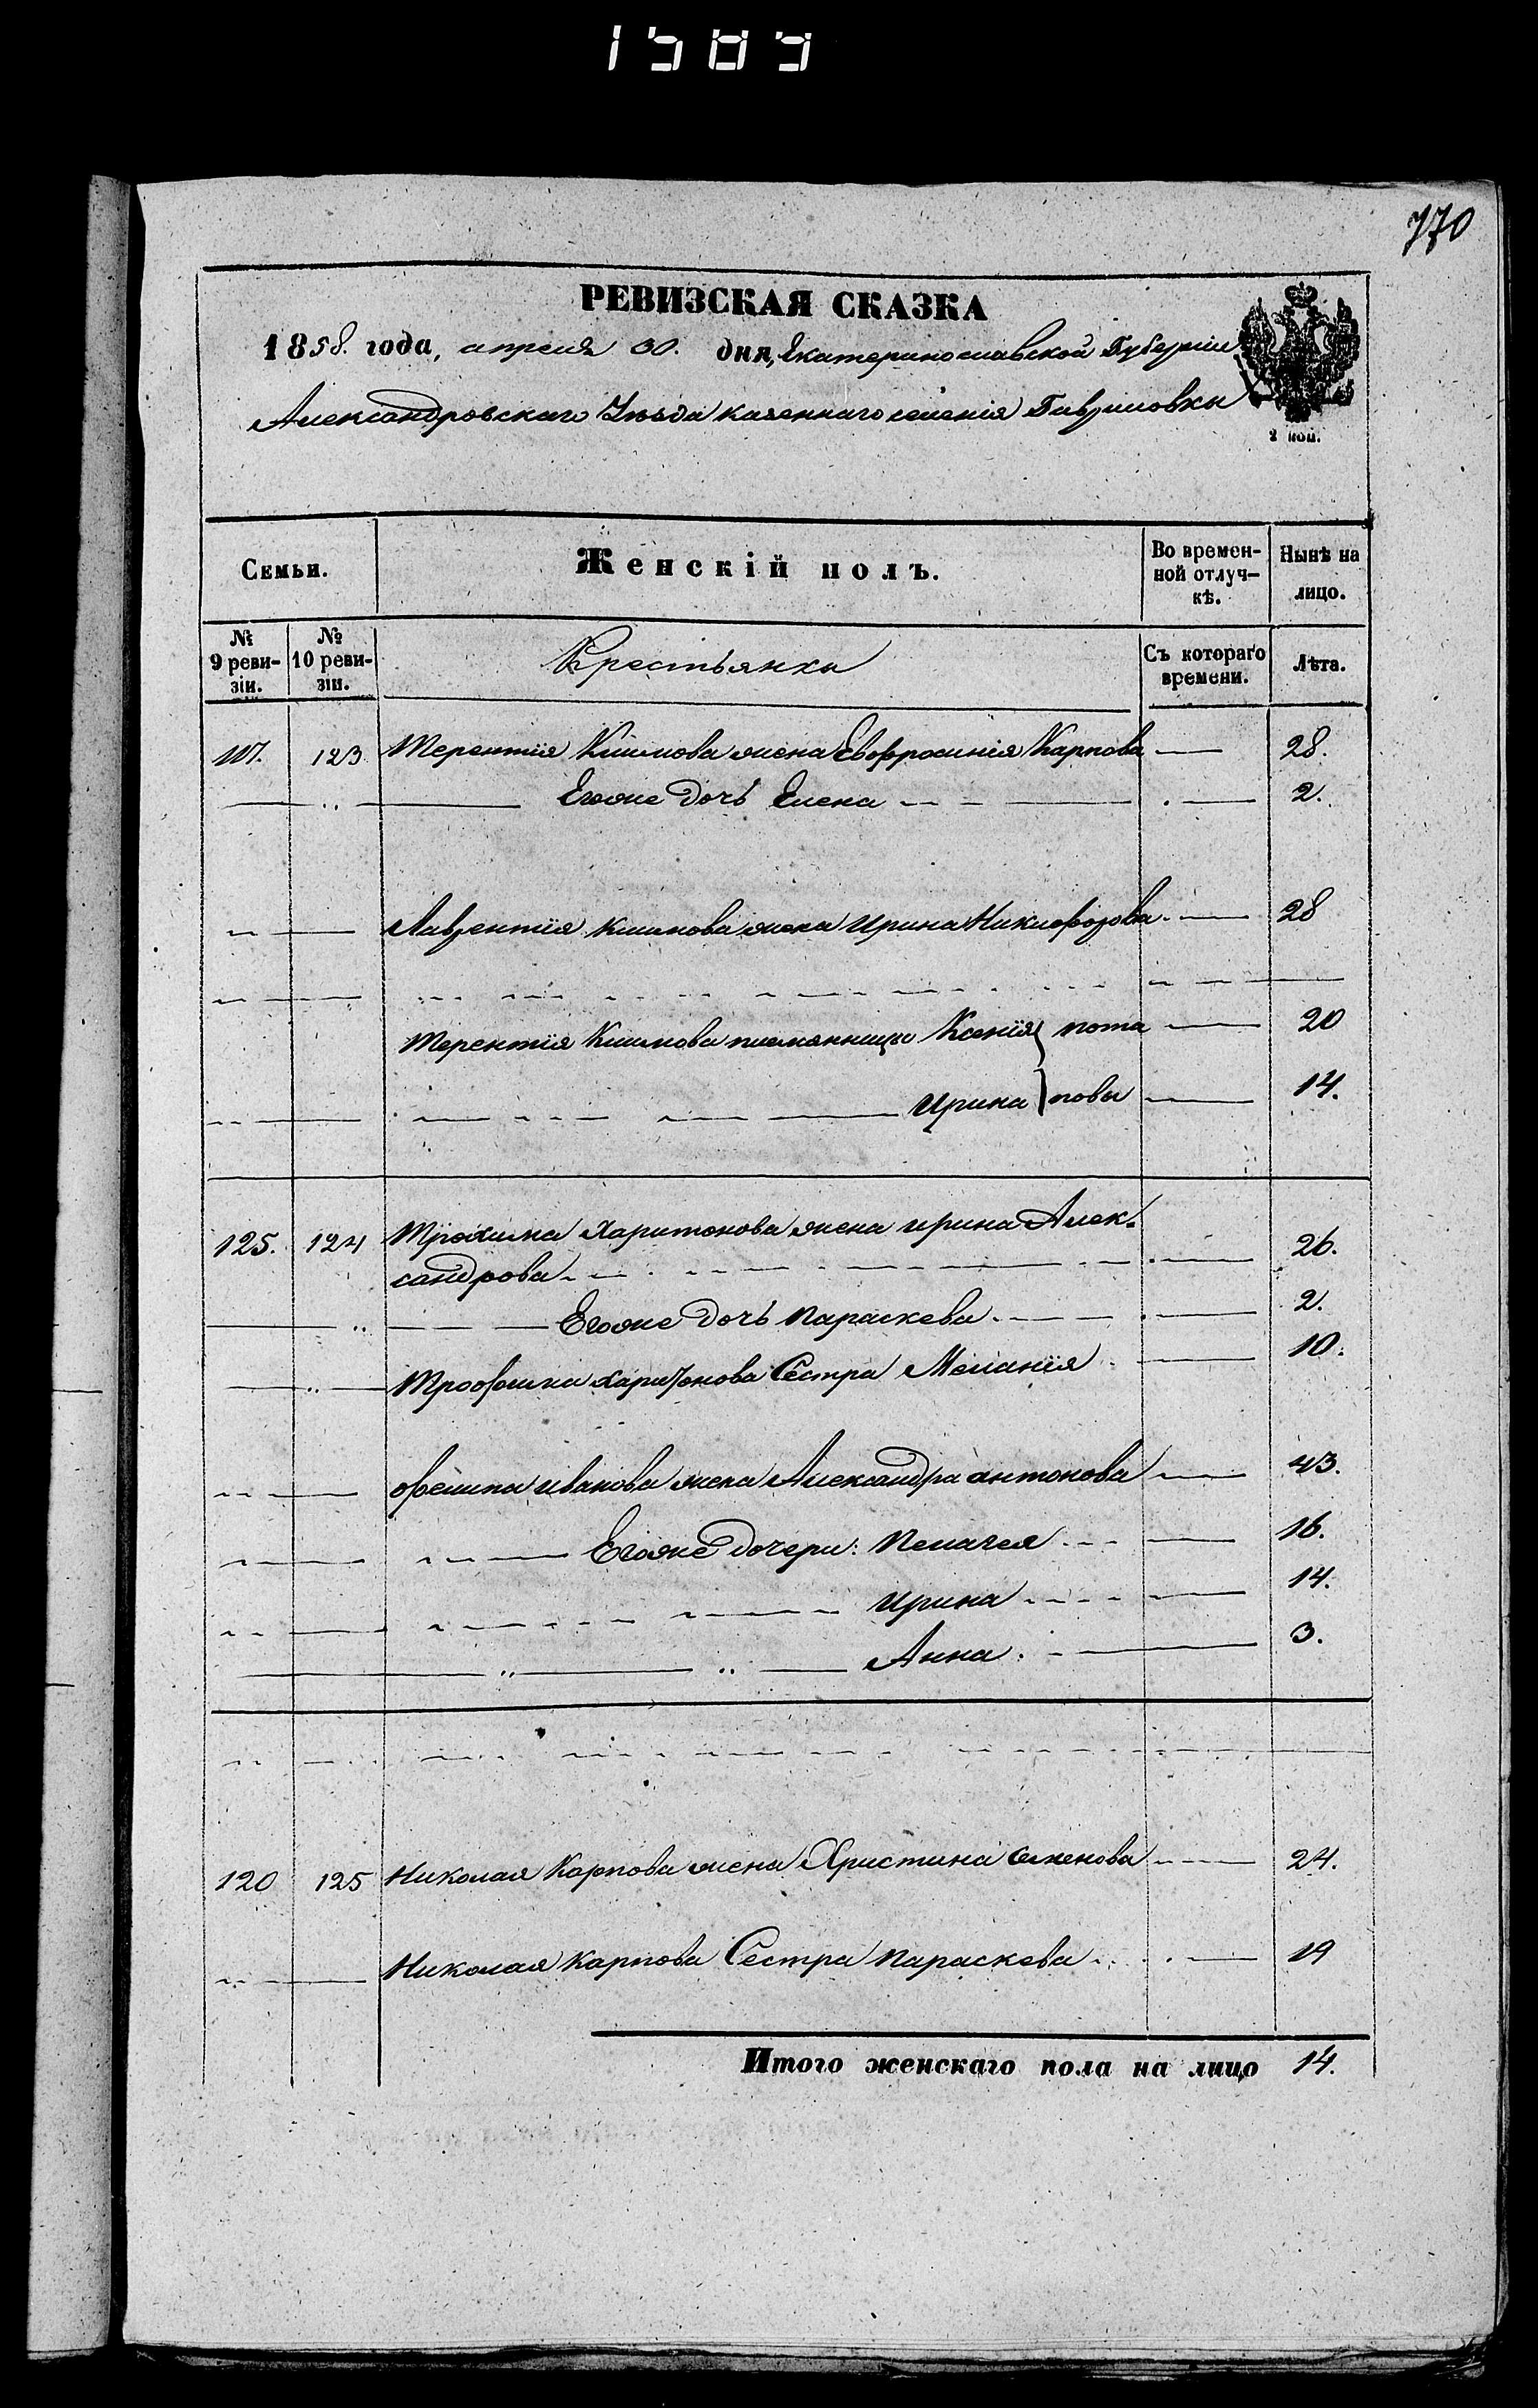 1585
770
РЕВИЗСКАЯ СКАЗКА
1858. года, апреля 30. дня, Екатеринославской Губернии
Александровскаго Уѣзда казеннаго селенія Гавриловки
2 коп.
Семьи. Женскій полъ. Во времен- Нынѣ на
ной отлуч- лицо.
кѣ.
№ № Крестьянки Съ котораго Лѣта.
9 реви- 10 реви- времени.
зіи. зіи.
117. 123 Терентія Климова жена Евфросинія Карпова 28.
Егоже дочь Елена 2.
Лаврентія Климова жена Ирина Никифорова 28
Терентія Климова племянницы Ксенія } пота 20
Ирина } повы 14.
125. 124 Трохима Харитонова жена Ирина Алек-
сандрова 26.
Егоже дочь Параскева 2.
Трофима Харитонова Сестра Меланія 10.
Ивана жена Александра Антонова 43.
Егоже дочери: Пелагея 16.
Ирина 14.
Анна 3.
120 125 Николая Карпова жена Христина Семенова 24.
Николая Карпова Сестра Параскева 19
Итого женскаго пола на лицо 14.